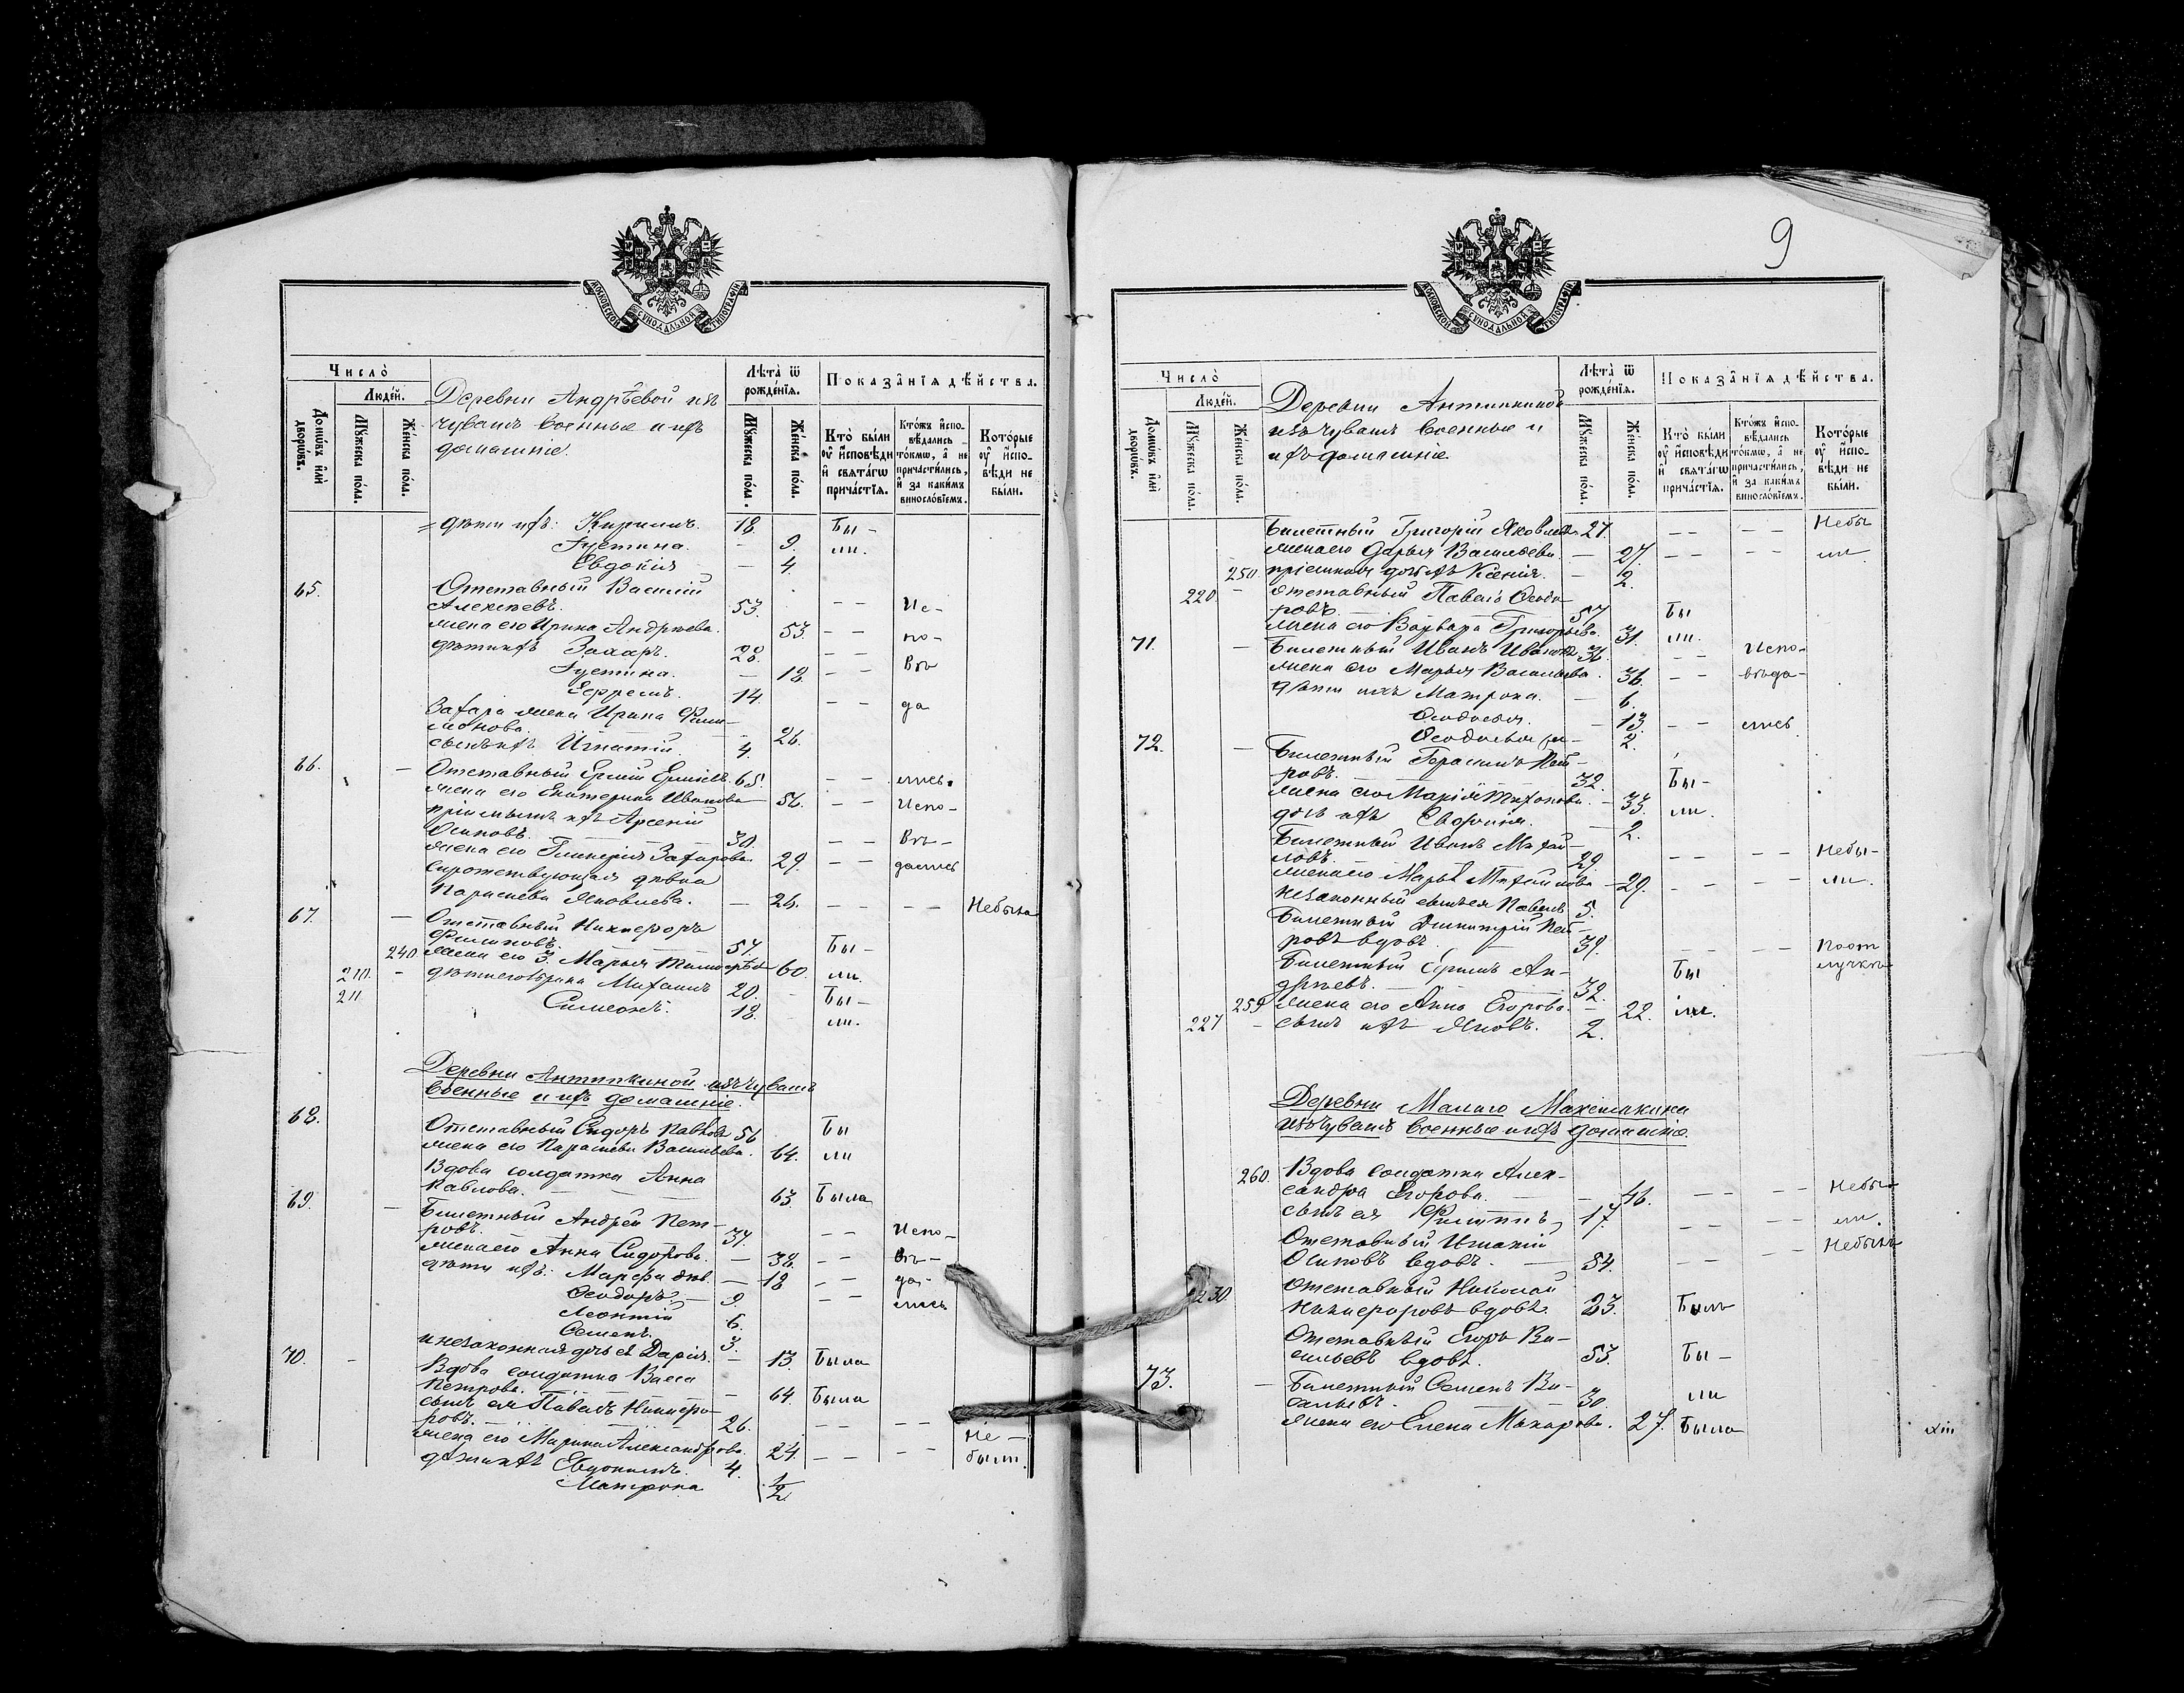 МОСКОВСКОЙ СѴНОДАЛЬНОЙ ТИПОГРАФІИ
Число̀
Люде́й.
Домѡ́въ и҆лѝ дворѡ́въ.
Мꙋ́жеска по́ла.
Же́нска по́ла.
Деревни Андрѣевой изъ
чувашъ военные и ихъ
домашніе.
Лѣ́та ѿ рожде́нїѧ.
Мꙋ́жеска по́ла.
Же́нска по́ла.
Показа̑нїѧ дѣ́йства.
Кто̀ бы́ли оу҆ и҆́сповѣди и҆ свѧта́гѡ прича́стїѧ.
Кто́жъ и҆спо­вѣ́дались то́кмѡ, а҆ не причасти́лись, и҆ за каки́мъ винослóвїемъ.
Кото́рые оу҆ и҆́спо­вѣди не бы́ли.
дѣти ихъ: Кириллъ. 18. Бы-
Іустина. — 9. ли.
Евдокія — 4.
65. Отставный Василій
Алексѣевъ. 53. — — Ис-
жена его Ирина Андрѣева. 53. — — по-
дѣти ихъ Захаръ. 28. — — вѣ
Іустина. — 18.
Ефремъ. 14. — — да
Захара жена Ирина Фили-
монова. 26.
сынъ ихъ Игнатій. 4.
66. — Отставный 65. — — лись.
жена его Екатерина Иванова 56. — — Испо-
пріемышъ ихъ Арсеній
Осиповъ. 30. — — вѣ-
жена его Гликерія Захарова. 29. — — дались
сиротствующая дѣвка
Параскева Яковлева. — 26. — — — — Небыла
67. — Отставный Никифоръ
Филиповъ. 57. Бы-
240. жена его 3. Марья Тимофѣева 60. ли.
210. — дѣти его Михаилъ 20. — Бы-
211 Симеонъ. 18. ли.
Деревни Антипкиной изъ чувашъ
военные и ихъ домашніе.
68. Отставный Сидоръ Павловъ 56 Бы
жена его Параскева Васильева. 64. ли
Вдова солдатка Анна
Павлова. — — 63. Была
69. — Билетный Андрей Пет-
ровъ. 37. — — Испо-
жена его Анна Сидорова. — 38. — — вѣ-
дѣти ихъ: Марфа — 18 — — да-
Ѳеодоръ. — 9. — — лись
Леонтій 6.
Семенъ. 3.
и незаконная дочь ея Дарія. — 13. Была
70. — Вдова солдатка Васса
Петрова. — 64. Была
сынъ ея Павелъ Никифо-
ровъ. 26. — — — —
жена его Марина Александрова. 24. — — — — Не-
дѣти ихъ Евдокимъ. 4. были.
Матрона 1/2
9
МОСКОВСКОЙ СѴНОДАЛЬНОЙ ТИПОГРАФІИ
Число̀
Люде́й.
Домѡ́въ и҆лѝ дворѡ́въ.
Мꙋ́жеска по́ла.
Же́нска по́ла.
Деревни Антипкиной
изъ чувашъ военные и
ихъ домашніе
Лѣ́та ѿ рожде́нїѧ.
Мꙋ́жеска по́ла.
Же́нска по́ла.
Показа̑нїѧ дѣ́йства.
Кто̀ бы́ли оу҆ и҆́сповѣди и҆ свѧта́гѡ прича́стїѧ.
Кто́жъ и҆спо­вѣ́дались то́кмѡ, а҆ не причасти́лись, и҆ за каки́мъ винослóвїемъ.
Кото́рые оу҆ и҆́спо­вѣди не бы́ли.
Билетный Григорій Яковлевъ 27. — — — — Небы
жена его Дарья Васильева. — 27. — — — — ли
250. пріемная дочь ихъ Ксенія. — 2.
220. — отставный Павелъ Ѳеодо-
ровъ. 57. Бы
жена его Варвара Григорьева. 31. ли.
71. — Билетный Иванъ Ивановъ 36. — — Испо-
жена его Марья Васильева. 36. — — вѣда-
дѣти ихъ Матрона. — 6.
Ѳеодосья. — 13. — — лись
Ѳеодосья — 2.
72. — Билетный Герасимъ Пет-
ровъ. 32. Бы-
жена его Марія — 33. ли.
дочь ихъ — 2.
Билетный Иванъ Михай-
ловъ. 29. — — — — Небы-
жена его Марья Михайлова — 29. — — — — ли.
незаконный сынъ ея Павелъ 5.
Билетный Димитрій Пет-
ровъ вдовъ. — 39. — — — — По от
лучкѣ
Билетный Ан- Бы
дрѣевъ. — 32.
259 жена его Анна Егорова. — 22. ли.
227 — сынъ ихъ Яковъ. 2.
Деревни Малаго Максимкина
изъ чувашъ военные и ихъ домашніе.
260. Вдова солдатка Алек-
сандра Егорова. — — 46. — — — — Небы-
сынъ ея Филиппъ, 17. — — — — ли.
Отставный Игнатій Небылъ
Осиповъ вдовъ. — 54. — — —
230. отставный Николай
Никифоровъ вдовъ. 23. Былъ
Отставный Егоръ Ва-
сильевъ вдовъ. 53. Бы-
73. — Билетный Семенъ Ва-
сильевъ. — 30. ли
жена его Елена Макарова. 27. Была